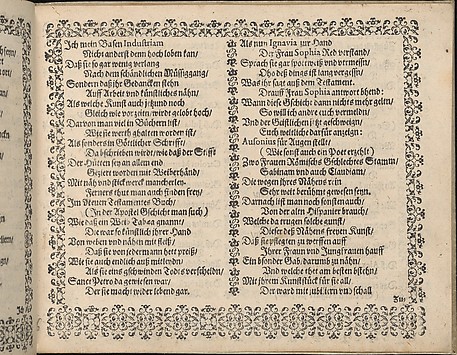 Ich mein Basen Industriam
Nicht anderst denn hoch loben kan/
Daß sie so gar wenig verlang
Nach dem schändlichen Müssiggang/
Sondern daß ihr Gedancken stehn
Auff Arbeit und künstliches nähn/
Als welche Kunst auch jetzund noch
Gleich wie vor zeitn/ wird gelobt hoch/
Darvon man viel in Büchern ist/
Wie sie werth ghalten worden ist/
Als sonders in Göttlicher Schrifft/
Da bschrieben wird/ wie daß der Stifft
Der Hütten sey an allem end
Geziert worden mit Weiberhänd/
Mit näh und stickwerck mancherley.
Ferners thut man auch finden frey/
Im Neuen Testamentes Buch/
(In der Apostel Gschicht man such)
Wie daß ein Weib Tabea gnannt/
Die war so künstlich ihrer Hand
Von weben und nähen mit fleiß/
Daß sie von jederman hett preiß/
Wie sie auch endlich auß milterden/
Als sie eins gschwinden Todts verscheiden/
Sanct Petro da gewiesen war/
Der sie macht wider lebend gar.
Als nun Ignavia zur Hand
Der Frau Sophia Red verstand/
Sprach sie gar spottweiß und vermessn/
Oho deß dings ist lang vergessn/
Was ihr sagt auß dem Testament.
Drauff Frau Sophia antwort bhend:
Wann diese Gschicht dann nichts mehr gelten/
So will ich andre euch vermeldn/
Und der Geistlichen jetzt gschweign/
Euch weltliche darfür anzeign:
Ausonius für Augen stellt/
(Wie sonst auch ein Poet erzehlt)
Zwo Frauen Römischs Gschlechtes Stamm/
Sabinam und auch Claudiam/
Die wegen ihres Nähens rein
Sehr weit berühmt gewesen seyn.
Darnach list man noch sonsten auch/
Von der alten Hispanier brauch/
Welche da trugen solche gunst/
Dieser deß Nähens freyen Kunst/
Daß sie pflegten zu werffen auff
Ihrer Frauen und Jungfrauen hauff
Ein bsonder Gab darumb zu nähn/
Und welche thet am besten bstehn/
Mit ihrem Kunststück für sie all/
Der ward mit jubiliern und schall